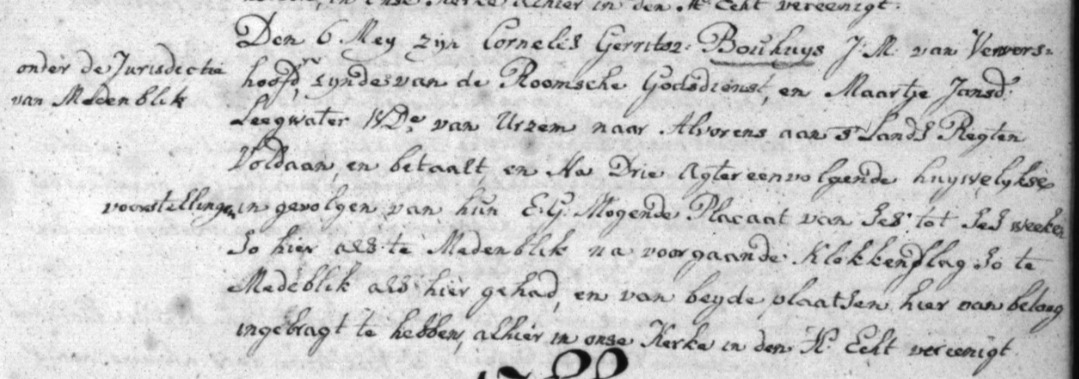 in onse Kerke alhier in den H: Echt vereenigt.
Den 6 Mey zijn Cornelis Gerritsz: Bouhuys J: M: van Ververs=
onder de Jurisdictie
van Medenblik
hoofd, zynde van de Roomsche Godsdienst, en Maartje Jansd:
Leegwater WDe. van Urzem naar Alvorens aan 's Lands Regten
Voldaan, en betaalt, en Na Drie Agtereenvolgende huywelykse
voorstellingen in gevolgen van hun E: G: Mogende Placaat van Ses tot Ses weeken
So hier als te Medenblik na voorgaande Klokkenslag So te
Medeblik als hier gehad, en van beyde plaatsen hier van belang
ingebragt te hebben, alhier in onse Kerke in den H: Echt vereenigt.